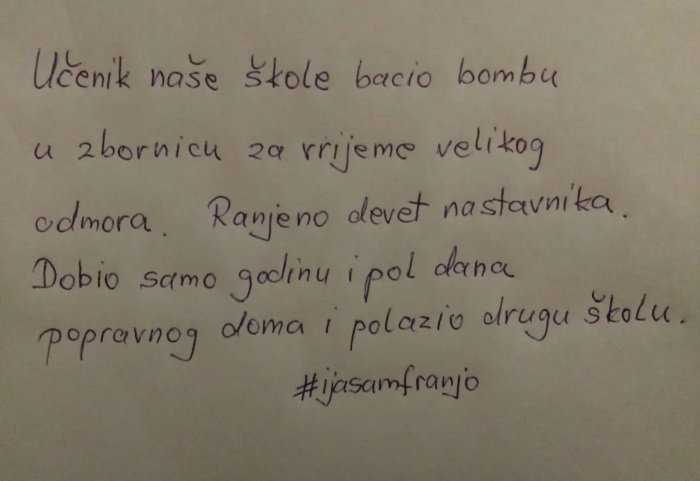 Učenik naše škole bacio bombu
u zbornicu za vrijeme velikog
odmora. Ranjeno devet nastavnika.
Dobio samo godinu i pol dana
popravnog doma i polazio drugu školu.
#ijasamfranjo